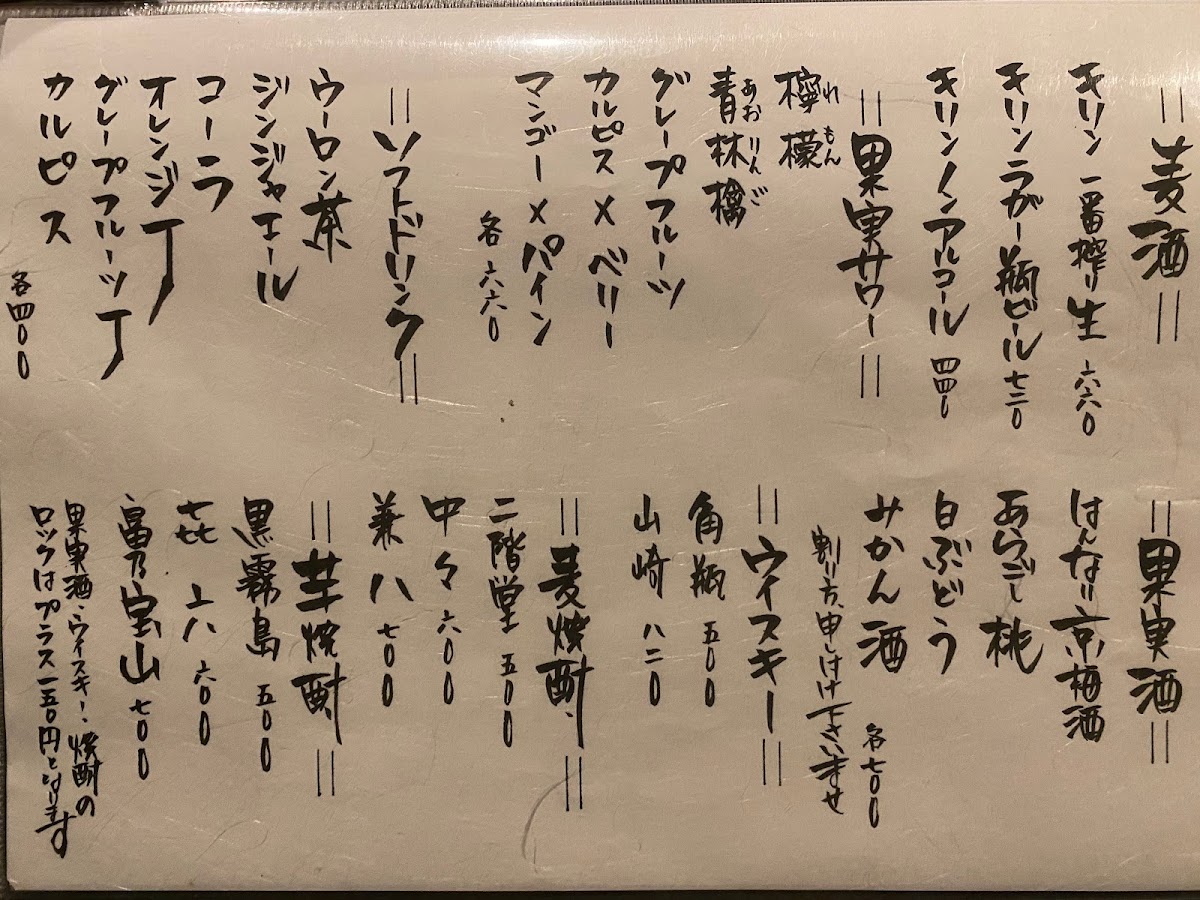 =麦酒=
キリン一番搾り生 六六〇
キリンラガー瓶ビール 七二〇
キリンノンアルコール 四四〇
=果実サワー=
檸檬 れもん
青林檎 あおりんご
グレープフルーツ
カルピス×ベリー
マンゴー×パイン
各六六〇
=ソフトドリンク=
ウーロン茶
ジンジャエール
コーラ
オレンジJ
グレープフルーツJ
カルピス
各四〇〇
=果実酒=
はんなり京梅酒
あらごし桃
白ぶどう
みかん酒
各七〇〇
割り方、申し付け下さいませ
=ウイスキー=
角瓶 五〇〇
山崎 八二〇
=麦焼酎=
二階堂 五〇〇
中々 六〇〇
兼八 七〇〇
=芋焼酎=
黒霧島 五〇〇
㐂六 六〇〇
富乃宝山 七〇〇
果実酒・ウイスキー・焼酎の
ロックはプラス一五〇円となります